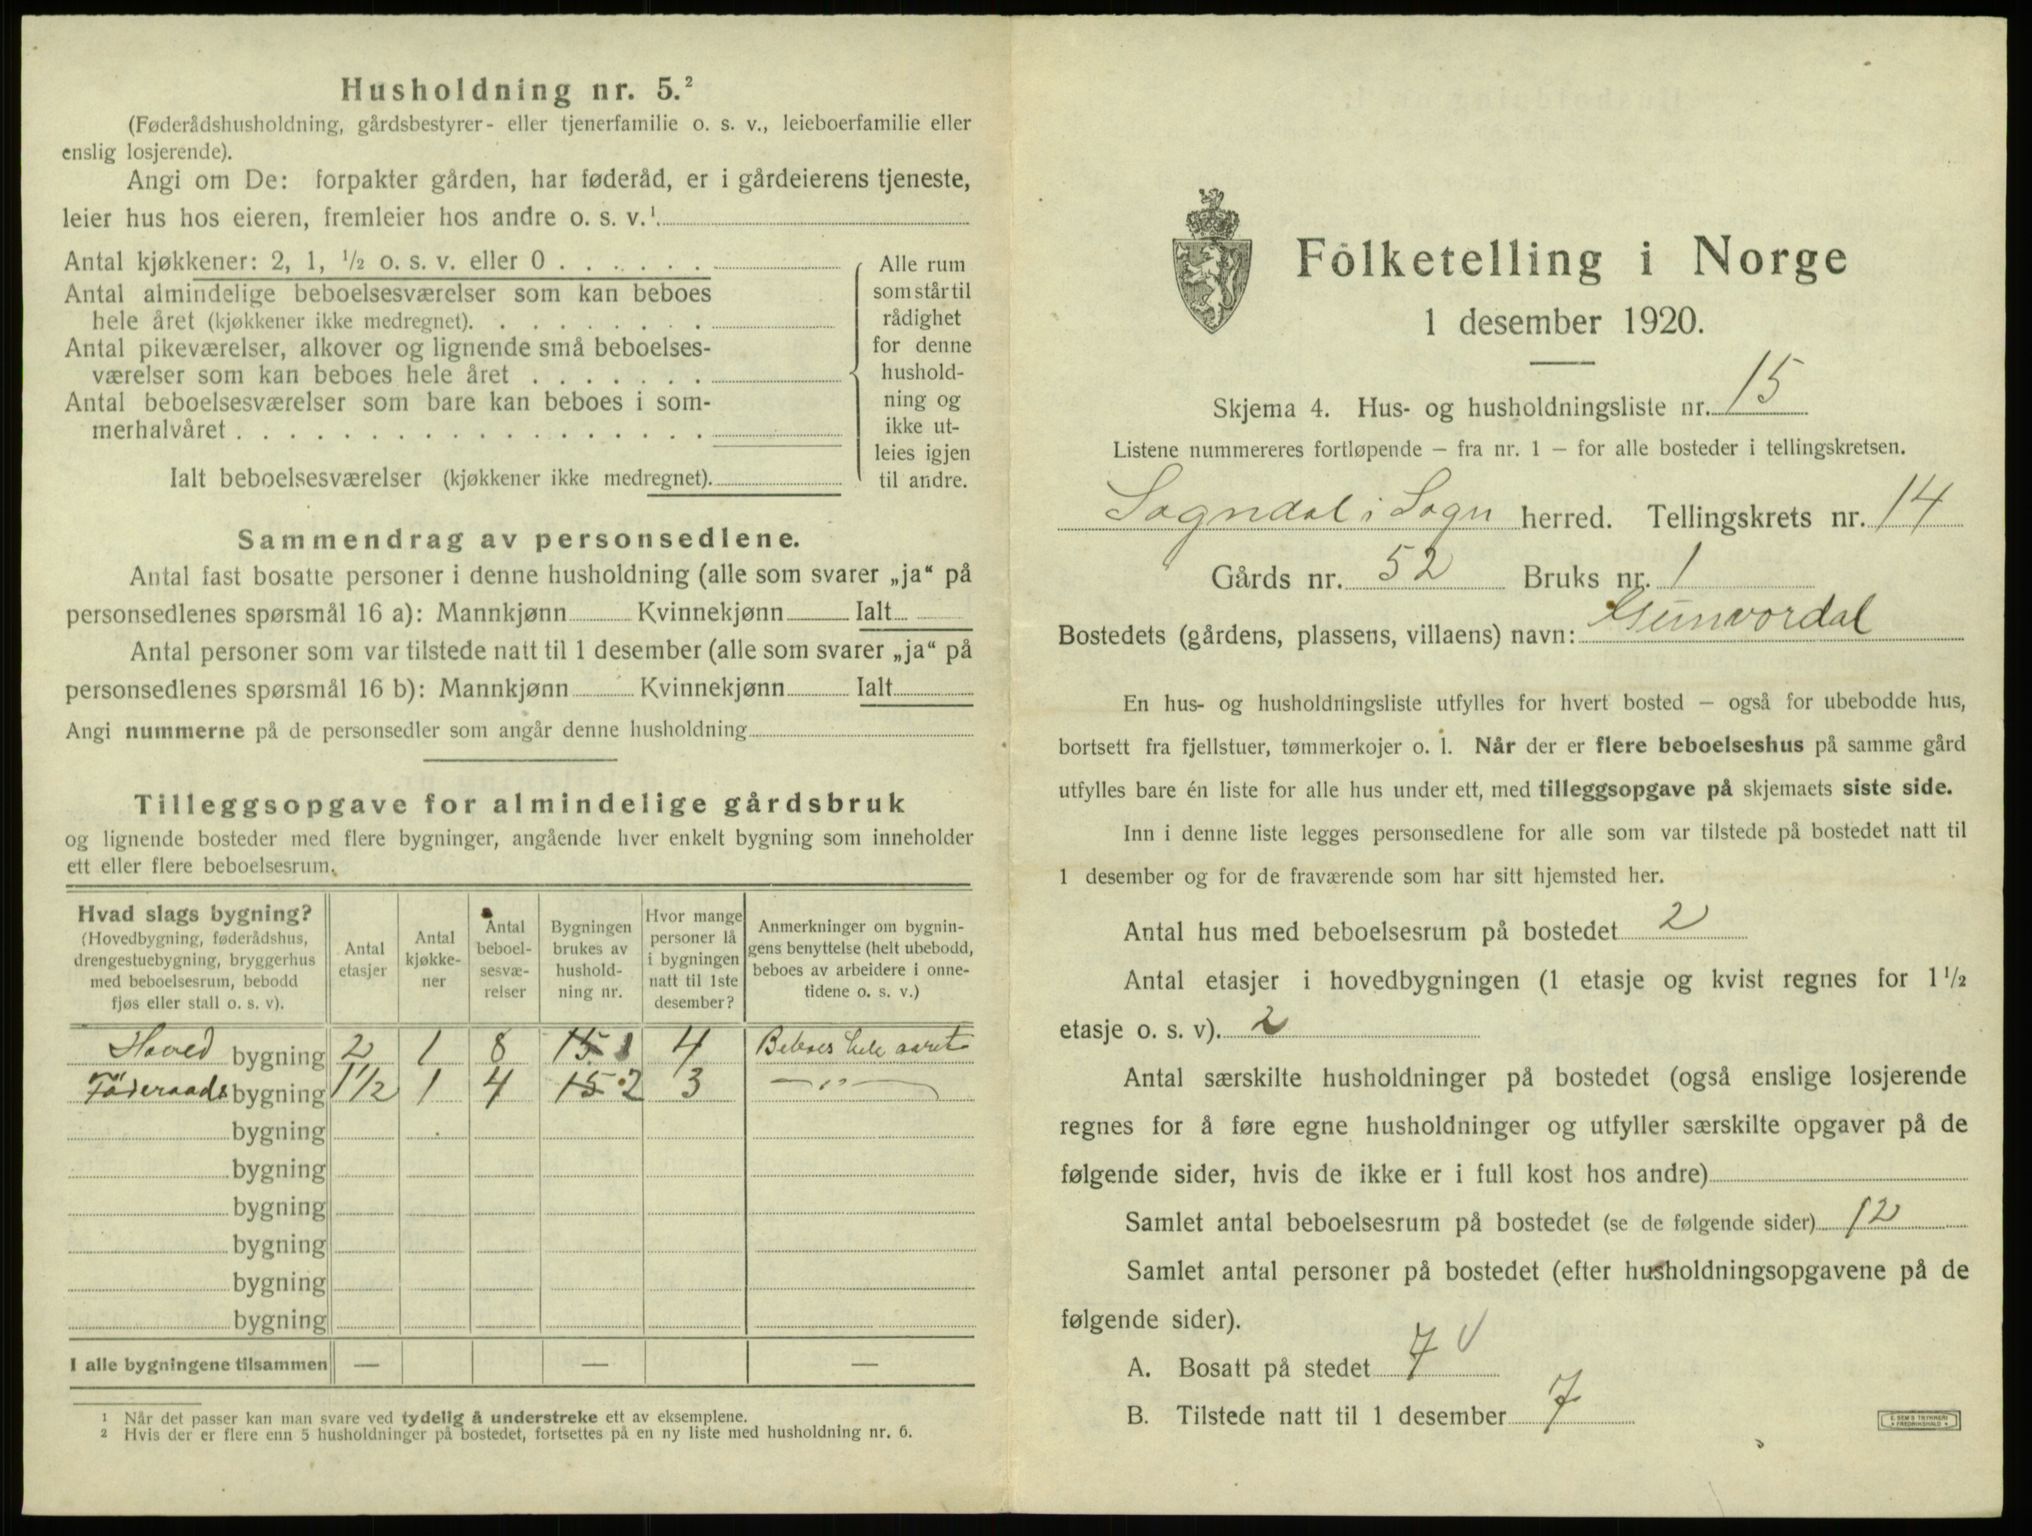 Husholdning nr. 5.²
(Føderådshusholdning, gårdsbestyrer- eller tjenerfamilie o. s. v., leieboerfamilie eller
enslig losjerende).
Angi om De: forpakter gården, har føderåd, er i gårdeierens tjeneste,
leier hus hos eieren, fremleier hos andre o. s. v.¹
Antal kjøkkener: 2, 1, ½ o. s. v. eller 0 . . . . . .
Antal almindelige beboelsesværelser som kan beboes
hele året (kjøkkener ikke medregnet). . . . . . . . .
Antal pikeværelser, alkover og lignende små beboelses-
værelser som kan beboes hele året . . . . . . .
Antal beboelsesværelser som bare kan beboes i som-
merhalvåret . . . . . . . . . . . . . . . . . .
Ialt beboelsesværelser (kjøkkener ikke medregnet).
Alle rum
som står til
rådighet
for denne
hushold-
ning og
ikke ut-
leies igjen
til andre.
Sammendrag av personsedlene.
Antal fast bosatte personer i denne husholdning (alle som svarer „ja“ på
personsedlenes spørsmål 16 a): Mannkjønn Kvinnekjønn Ialt
Antal personer som var tilstede natt til 1 desember (alle som svarer „ja“ på
personsedlenes spørsmål 16 b): Mannkjønn Kvinnekjønn Ialt
Angi nummerne på de personsedler som angår denne husholdning
Tilleggsopgave for almindelige gårdsbruk
og lignende bosteder med flere bygninger, angående hver enkelt bygning som inneholder
ett eller flere beboelsesrum.
Hvad slags bygning?
(Hovedbygning, føderådshus,
drengestuebygning, bryggerhus
med beboelsesrum, bebodd
fjøs eller stall o. s. v).
Antal
etasjer
Antal
kjøkke-
ner
Antal
beboel-
sesvæ-
relser
Bygningen
brukes av
hushold-
ning nr.
Hvor mange
personer lå
i bygningen
natt til 1ste
desember?
Anmerkninger om bygnin-
gens benyttelse (helt ubebodd,
beboes av arbeidere i onne-
tidene o. s. v.)
Hoved bygning 2 1 8 15 1 4 Beboes hele aaret
Føderaads bygning 1½ 1 4 15 2 3 — „ —
bygning
bygning
bygning
bygning
bygning
bygning
I alle bygningene tilsammen — — —
¹ Når det passer kan man svare ved tydelig å understreke ett av eksemplene.
² Hvis der er flere enn 5 husholdninger på bostedet, fortsettes på en ny liste med husholdning nr. 6.
Folketelling i Norge
1 desember 1920.
Skjema 4. Hus- og husholdningsliste nr. 15
Listene nummereres fortløpende – fra nr. 1 – for alle bosteder i tellingskretsen.
Sogndal i Sogn herred. Tellingskrets nr. 14
Gårds nr. 52 Bruks nr. 1
Bostedets (gårdens, plassens, villaens) navn: Gunvordal
En hus- og husholdningsliste utfylles for hvert bosted – også for ubebodde hus,
bortsett fra fjellstuer, tømmerkojer o. l. Når der er flere beboelseshus på samme gård
utfylles bare én liste for alle hus under ett, med tilleggsopgave på skjemaets siste side.
Inn i denne liste legges personsedlene for alle som var tilstede på bostedet natt til
1 desember og for de fraværende som har sitt hjemsted her.
Antal hus med beboelsesrum på bostedet 2
Antal etasjer i hovedbygningen (1 etasje og kvist regnes for 1 ½
etasje o. s. v). 2
Antal særskilte husholdninger på bostedet (også enslige losjerende
regnes for å føre egne husholdninger og utfyller særskilte opgaver på de
følgende sider, hvis de ikke er i full kost hos andre)
Samlet antal beboelsesrum på bostedet (se de følgende sider) 12
Samlet antal personer på bostedet (efter husholdningsopgavene på de
følgende sider).
A. Bosatt på stedet 7 √
B. Tilstede natt til 1 desember 7
E. SEM'S TRYKKERI
• FREDRIKSHALD •